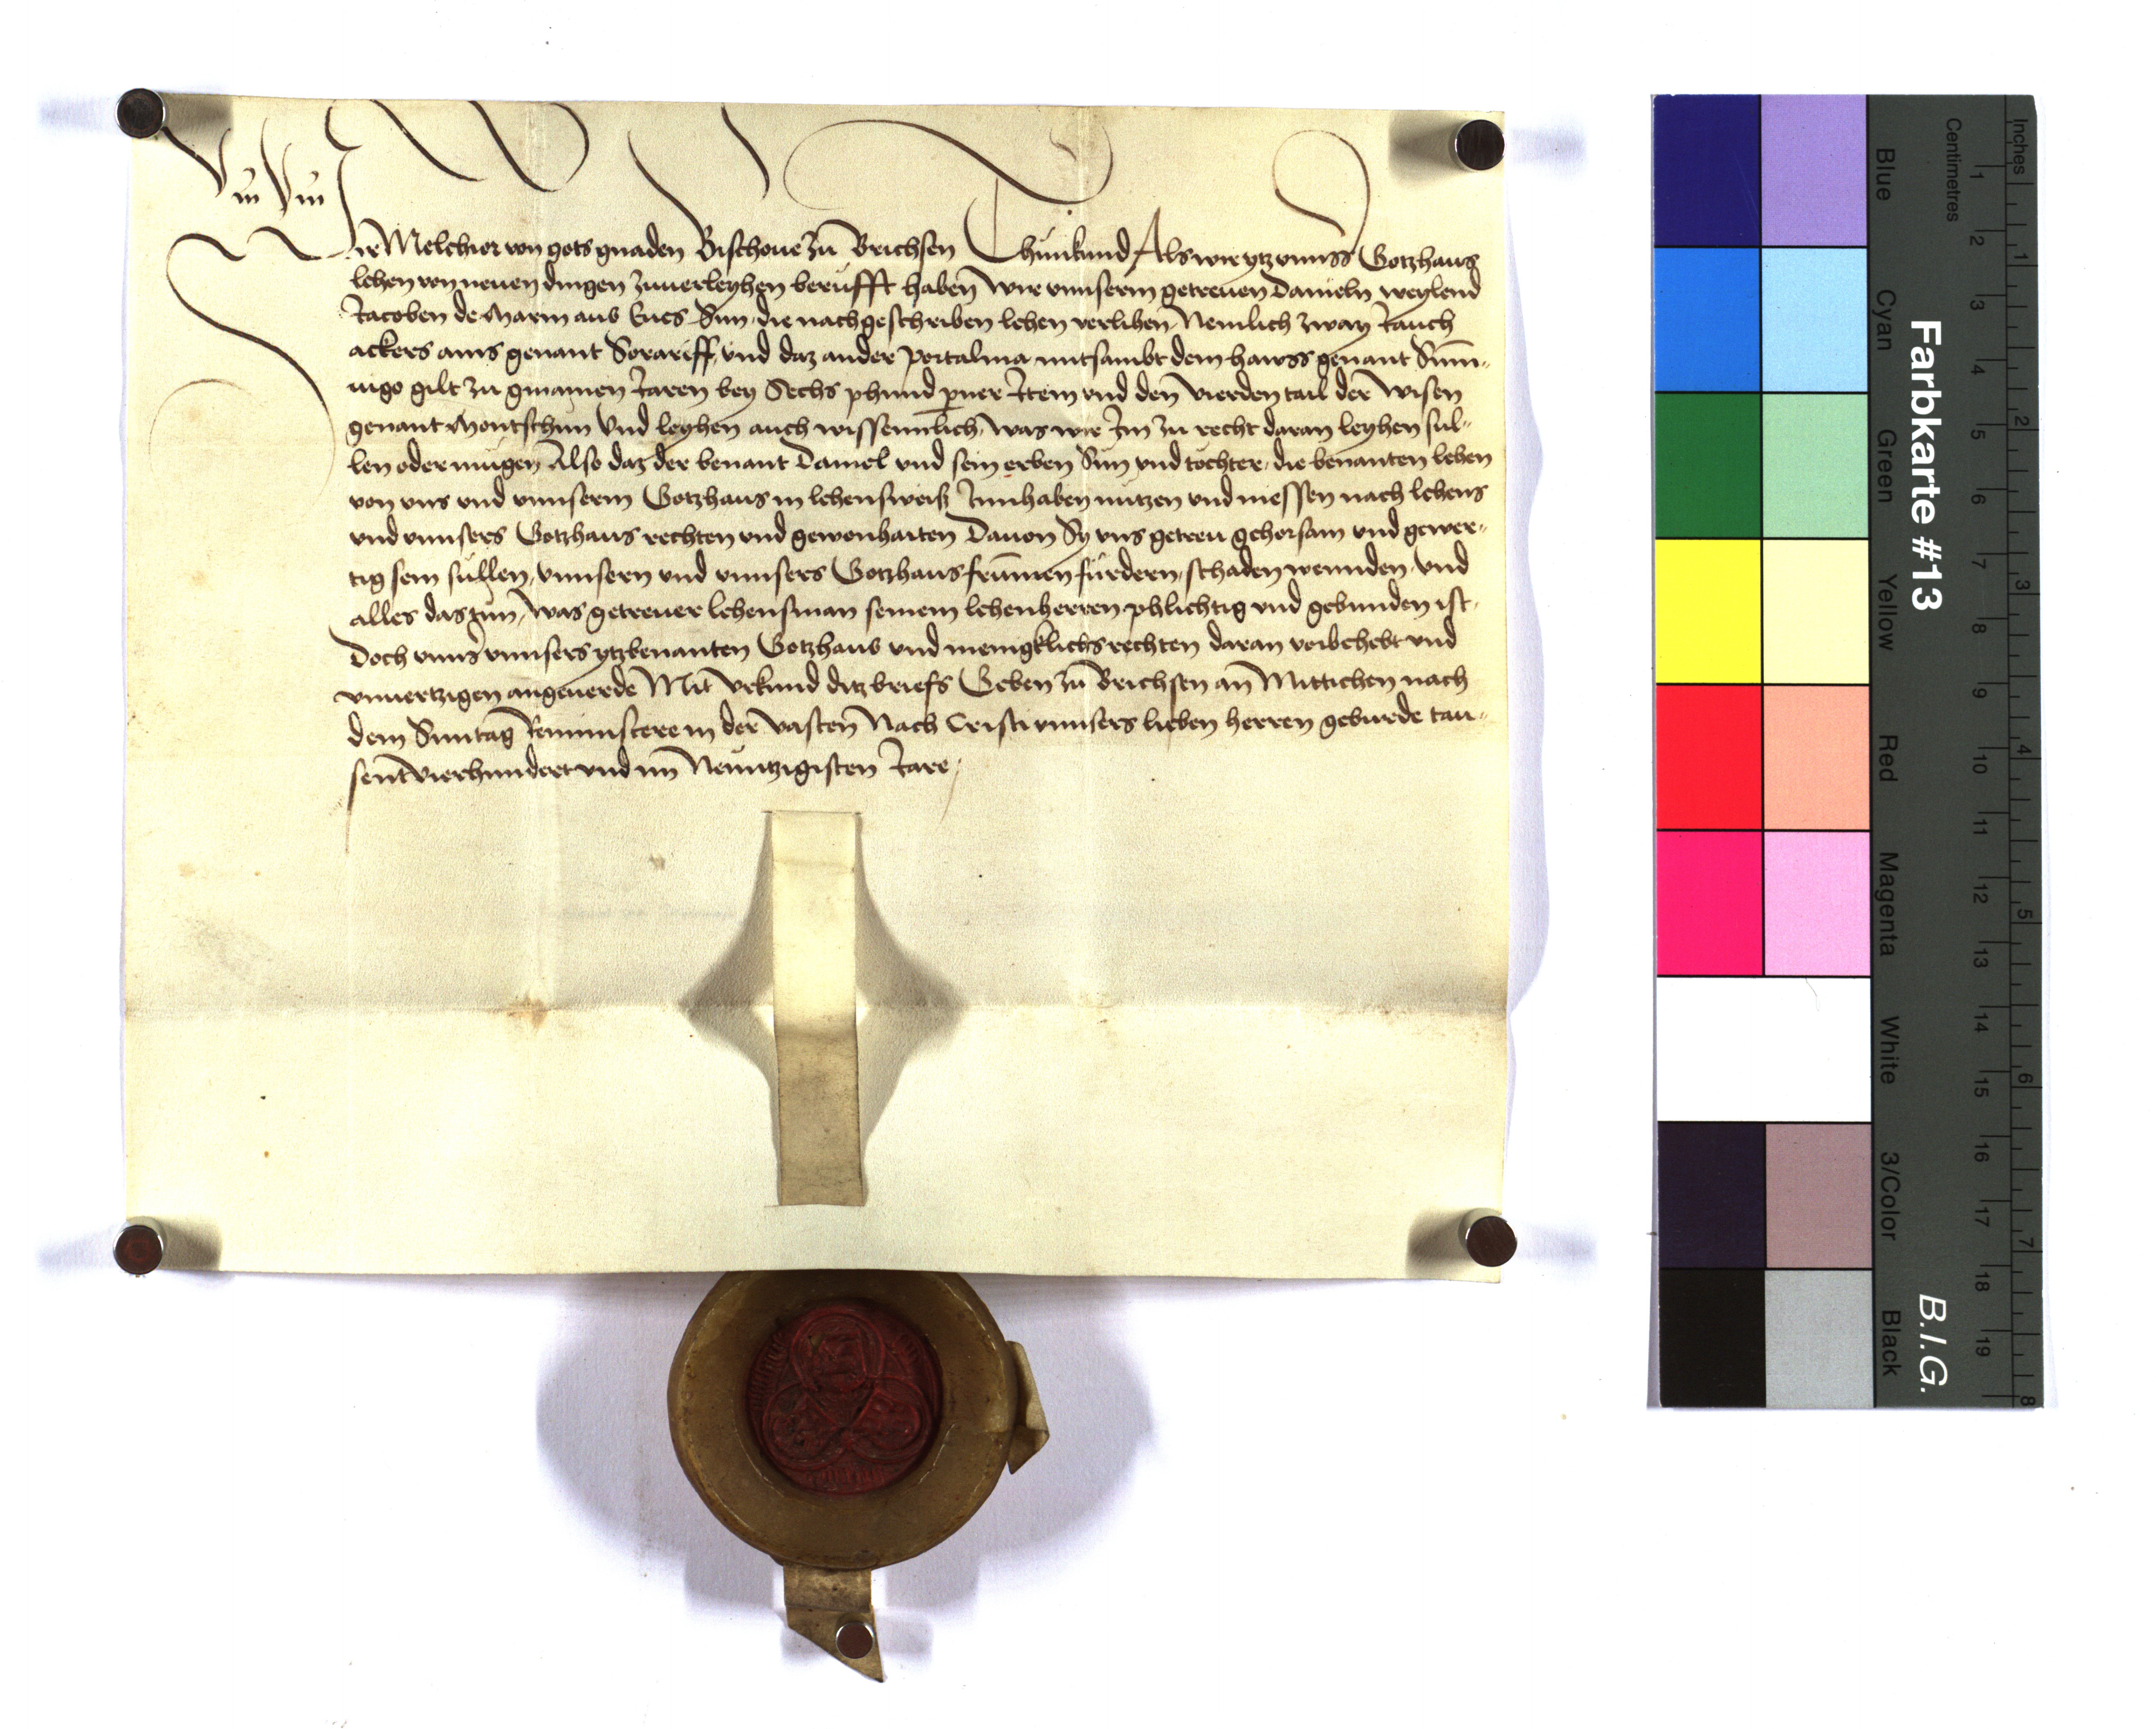 Wir Melchior von gots gnaden Bischoue zu Brichsen Thun kund Als wir ytz vnnsers Gotzhaus
lehen von neuen dingen zuuerleyhen berüfft haben Wir vnnserm getreuen Danieln weylend
Jacoben de Marin aus Eues Sun, die nachgeschriben lehen verlihen, Nemlich zway Jauch
ackers ains genant Sorariff, vnd daz ander Portalma mitsambt dem hawss genant Sum„
nigo gilt zu gmainen Jaren bey Sechs phund perner Item vnd den vierden tail der Wisen
genant Montschun Vnd leyhen auch wissenntlich, was wir Im zu recht daran leyhen sul„
len oder mügen Also daz der benant Daniel vnd sein erben Sün vnd töchter, die benanten lehen
von vns vnd vnnserm Gotzhaus in lehensweiss Innhaben nützen vnd niessen nach lehens
vnd vnnsers Gotzhaus rechten vnd gewonhaiten Dauon Sy vns getreu gehorsam vnd gewer„
tig sein süllen, vnnsern vnd vnnsers Gotzhaus frummen fürdern, schaden wennden, vnd
alles das tun, was getreuer lehensman seinem lehenherren phlichtig vnd gebunden ist,
Doch vnns vnnsers ytzbenanten Gotzhaus vnd menigklichs rechten daran vorbehebt vnd
vnuertzigen angeuerde Mit vrkund ditz briefs Geben zu Brichsen an Mittichen nach
dem Sunntag Reminiscere in der vasten Nach Cristi vnnsers lieben herren geburde tau„
sent vierhundert vnd im Neuntzigisten Jare,
Inches 1 2 3 4 5 6 7 8
Centimetres 1 2 3 4 5 6 7 8 9 10 11 12 13 14 15 16 17 18 19
Farbkarte #13 B.I.G.
Blue Cyan Green Yellow Red Magenta White 3/Color Black